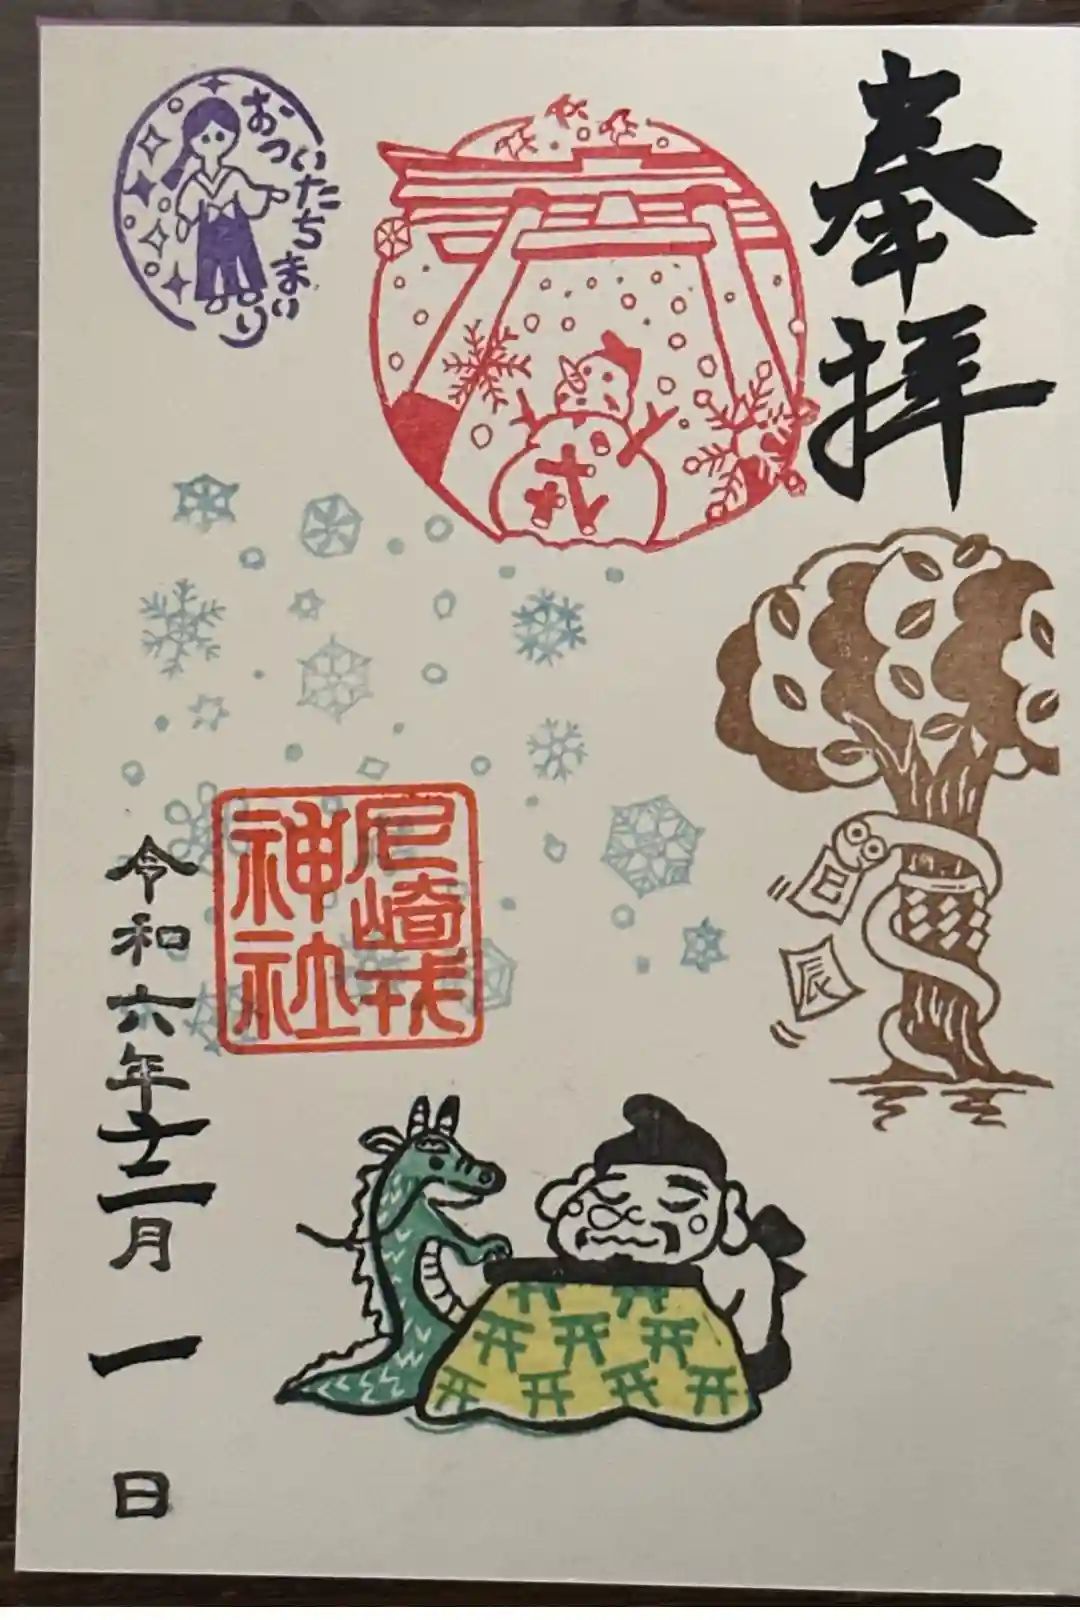 奉拝
おついたちまいり
戎
巳
辰
尼崎戎
神社
令和六年十二月一日